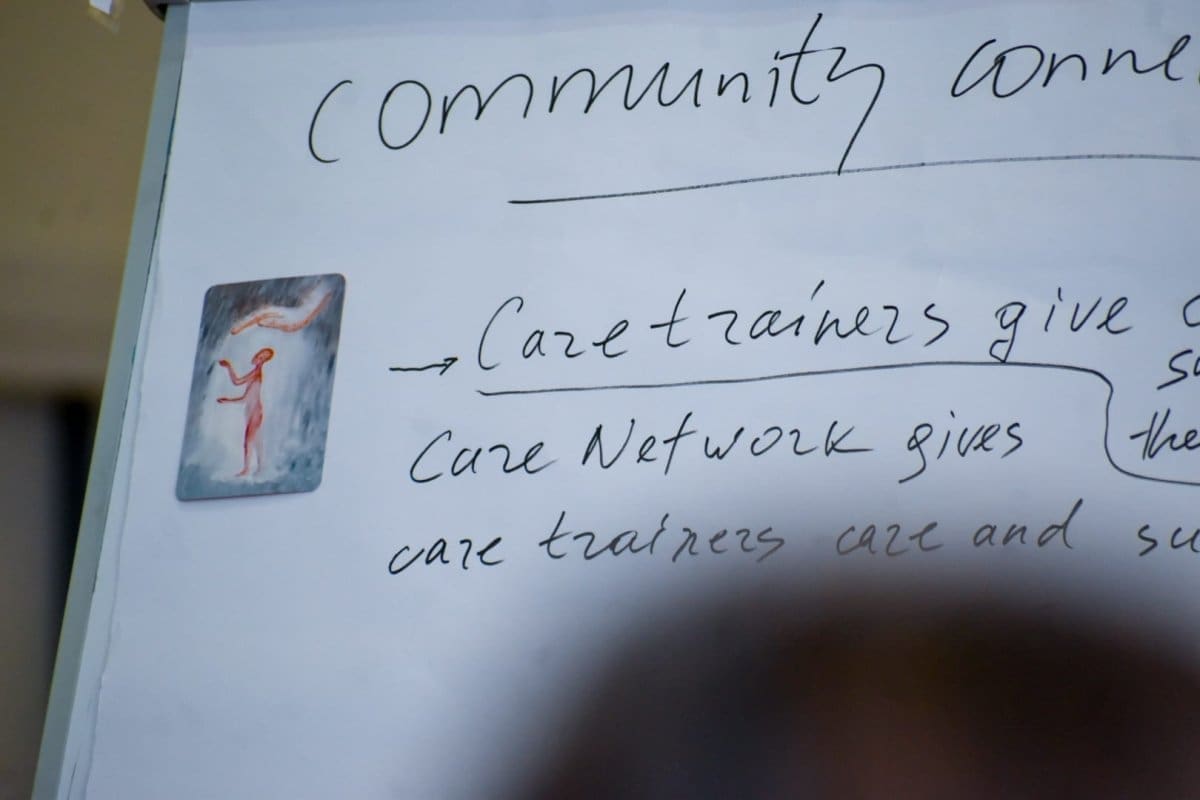 Community conne
→ Care trainers give
su
Care Network gives the
care trainers care and su